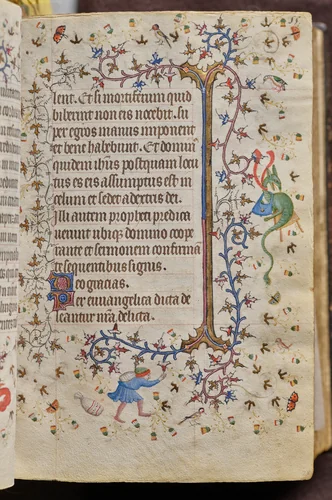 lent. Et si mortiferum quid
biberint non eis nocebit. Su
per egros manus imponent
et bene habebunt. Et dominus
quidem ihesus postquam locu
tus es eis assumptus est in
celum et sedet a dextris dei.
Illi autem prophecti predica
uerunt ubique domino coope
rante et sermonem confirma
te sequentibus signis.
Deo gracias.
Per euuangelica dicta de
leantur nostra delicta.